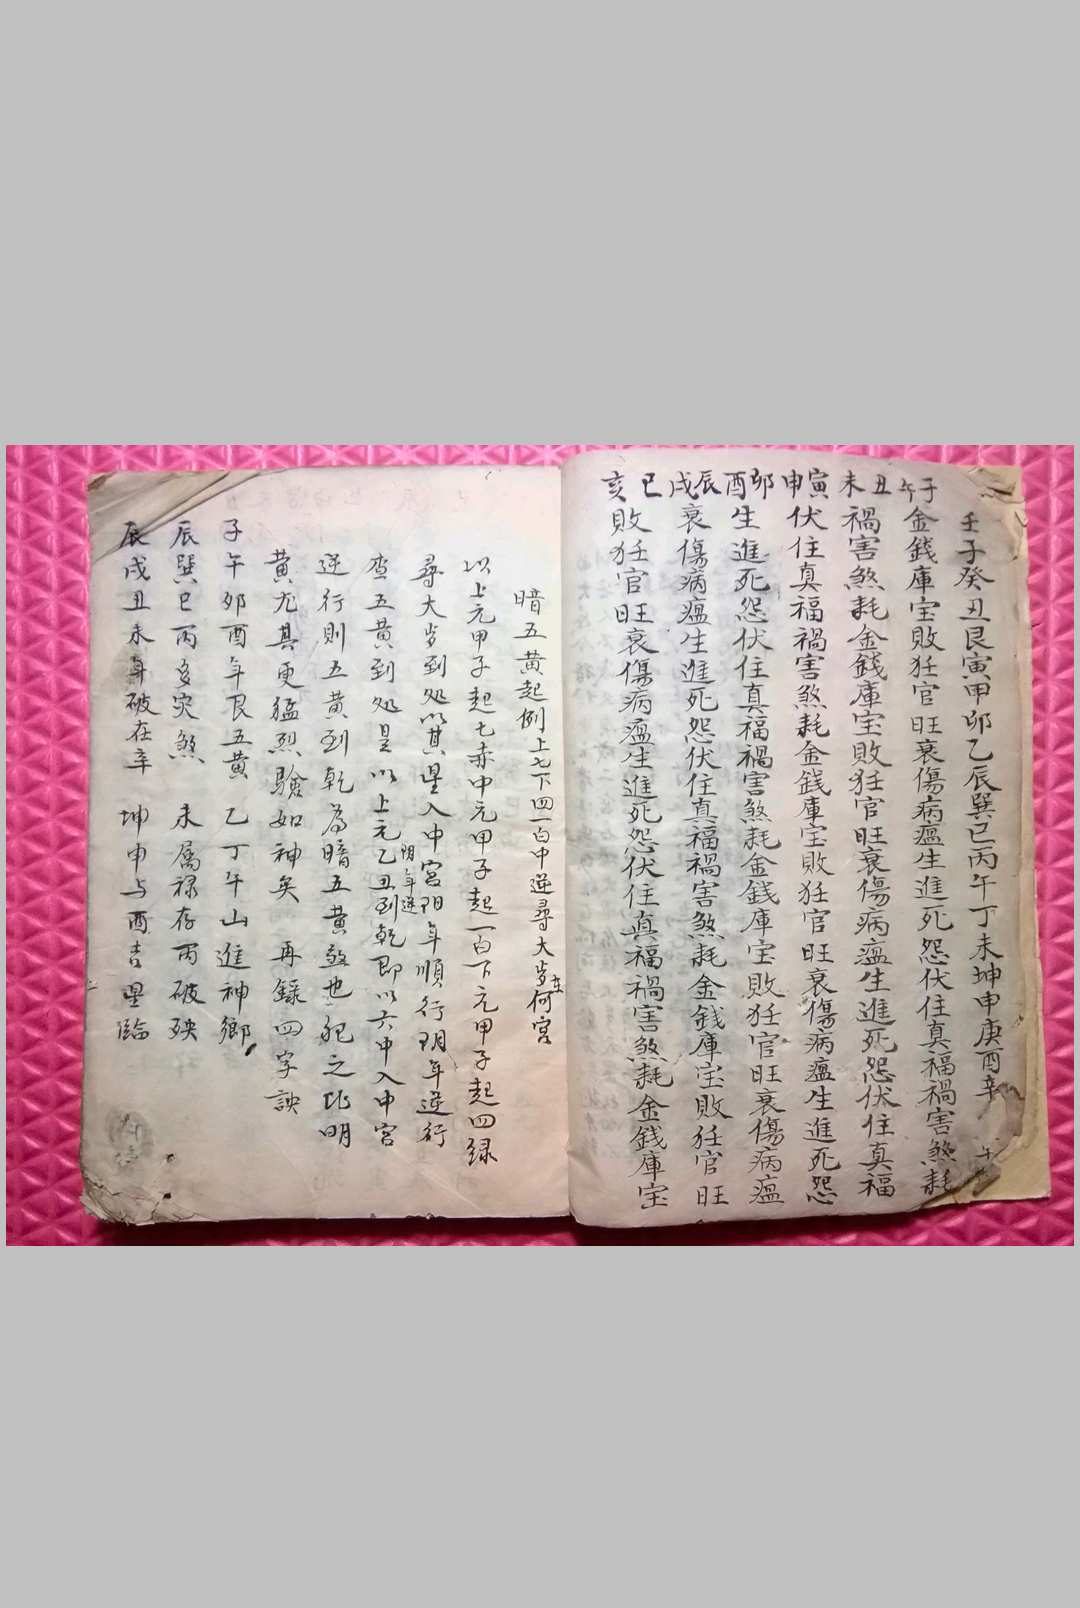 壬子癸丑艮寅甲卯乙辰巽巳丙午丁未坤申庚酉辛
子午金錢庫宝敗狂官旺衰傷病瘟生進死怨伏住真福禍害煞耗
丑未禍害煞耗金錢庫宝敗狂官旺衰傷病瘟生進死怨伏住真福
寅申伏住真福禍害煞耗金錢庫宝敗狂官旺衰傷病瘟生進死怨
卯酉生進死怨伏住真福禍害煞耗金錢庫宝敗狂官旺衰傷病瘟
辰戌衰傷病瘟生進死怨伏住真福禍害煞耗金錢庫宝敗狂官旺
巳亥敗狂官旺衰傷病瘟生進死怨伏住真福禍害煞耗金錢庫宝
暗五黄起例上七下四一白中逆尋大岁在何宮
以上元甲子起七赤中元甲子起一白下元甲子起四緑
尋大岁到处以其星入中宮阳年順行阴年逆行
阴年逆
查五黄到处是以上元乙丑到乾即以六中入中宮
逆行則五黄到乾為暗五黄煞也犯之比明
黄尤其更猛烈驗如神矣 再録四字訣
子午卯酉年艮五黄 乙丁午山進神鄉
辰巽巳丙多灾煞 未属禄存丙破殃
辰戌丑未年破在辛 坤申与酉吉星臨